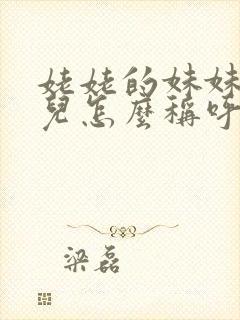 姥姥的妹妹
兒怎麼稱呼
梁磊